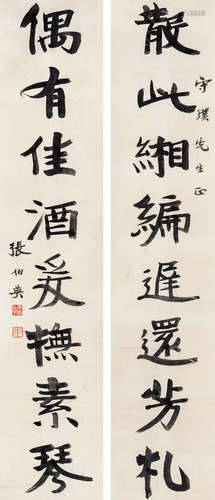 散此緗編遲還芳札
守璞先生正
偶有佳酒爰撫素琴
張伯英